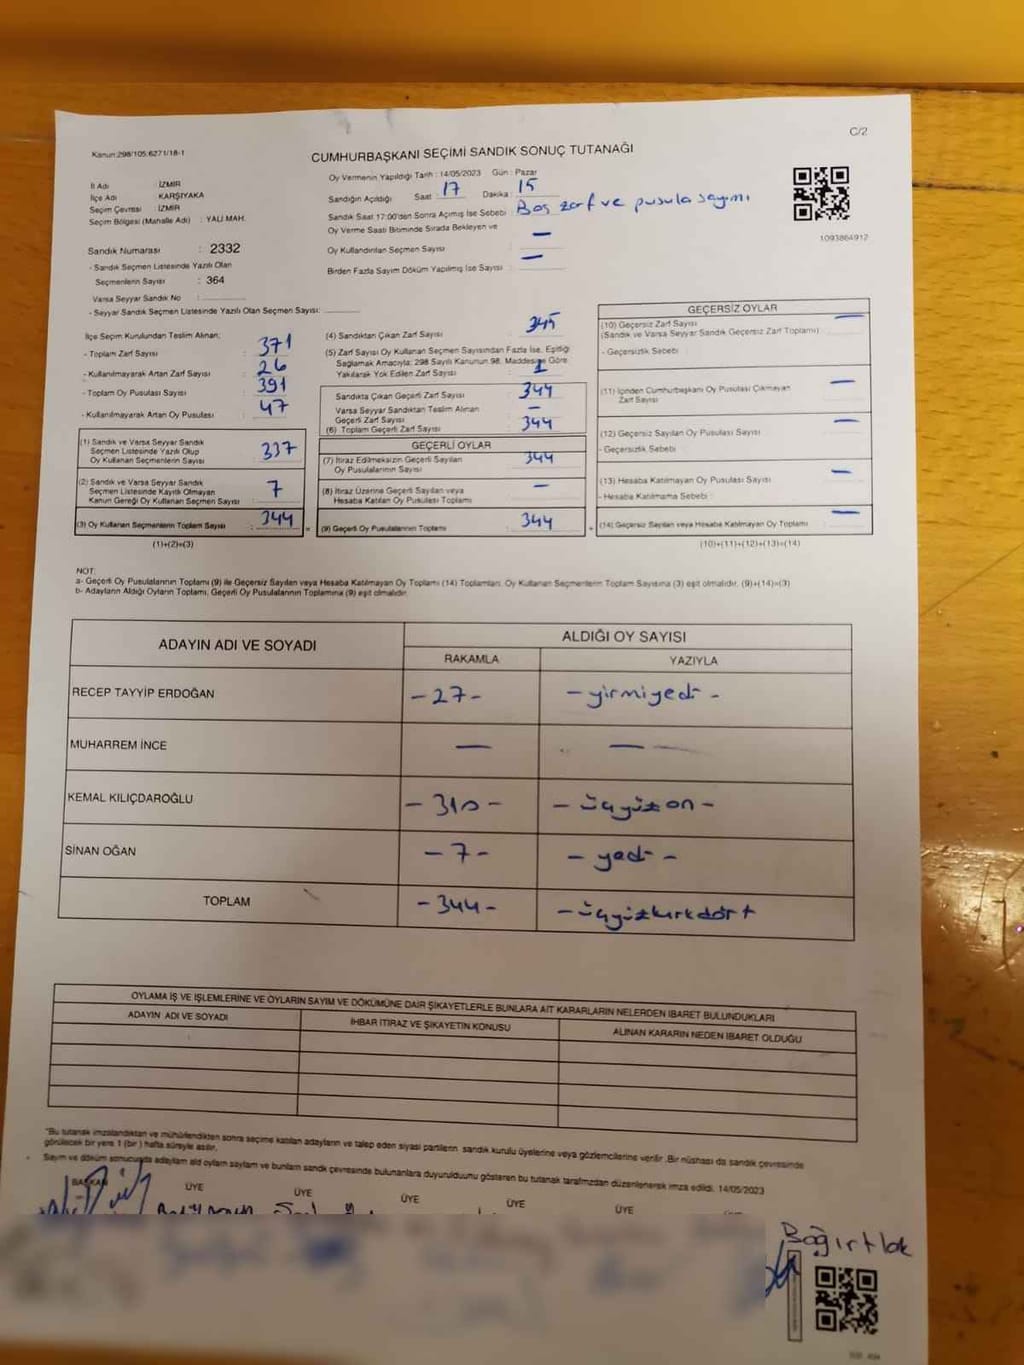 C/2
Kanun:298/105;6271/18-1
CUMHURBAŞKANI SEÇİMİ SANDIK SONUÇ TUTANAĞI
İl Adı İZMİR
İlçe Adı KARŞIYAKA
Seçim Çevresi İZMİR
Seçim Bölgesi (Mahalle Adı) : YALI MAH.
Sandık Numarası : 2332
- Sandık Seçmen Listesinde Yazılı Olan
Seçmenlerin Sayısı : 364
Varsa Seyyar Sandık No :
- Seyyar Sandık Seçmen Listesinde Yazılı Olan Seçmen Sayısı:
Oy Vermenin Yapıldığı Tarih : 14/05/2023 Gün : Pazar
Sandığın Açıldığı Saat : 17 Dakika : 15
Sandık Saat 17:00'den Sonra Açılmış İse Sebebi : Boş zarf ve pusula sayımı
Oy Verme Saati Bitiminde Sırada Bekleyen ve
Oy Kullandırılan Seçmen Sayısı : —
Birden Fazla Sayım Döküm Yapılmış İse Sayısı : —
1093864912
İlçe Seçim Kurulundan Teslim Alınan;
- Toplam Zarf Sayısı : 371
- Kullanılmayarak Artan Zarf Sayısı : 26
- Toplam Oy Pusulası Sayısı : 391
- Kullanılmayarak Artan Oy Pusulası : 47
(1) Sandık ve Varsa Seyyar Sandık
Seçmen Listesinde Yazılı Olup
Oy Kullanan Seçmenlerin Sayısı : 337
(2) Sandık ve Varsa Seyyar Sandık
Seçmen Listesinde Kayıtlı Olmayan
Kanun Gereği Oy Kullanan Seçmen Sayısı : 7
(3) Oy Kullanan Seçmenlerin Toplam Sayısı : 344
(1)+(2)=(3)
(4) Sandıktan Çıkan Zarf Sayısı : 345
(5) Zarf Sayısı Oy Kullanan Seçmen Sayısından Fazla İse, Eşitliği
Sağlamak Amacıyla; 298 Sayılı Kanunun 98. Maddesine Göre
Yakılarak Yok Edilen Zarf Sayısı : 1
Sandıkta Çıkan Geçerli Zarf Sayısı : 344
Varsa Seyyar Sandıktan Teslim Alınan
Geçerli Zarf Sayısı : —
(6) Toplam Geçerli Zarf Sayısı : 344
GEÇERLİ OYLAR
(7) İtiraz Edilmeksizin Geçerli Sayılan
Oy Pusulalarının Sayısı : 344
(8) İtiraz Üzerine Geçerli Sayılan veya
Hesaba Katılan Oy Pusulası Toplamı : —
= (9) Geçerli Oy Pusulalarının Toplamı : 344
GEÇERSİZ OYLAR
(10) Geçersiz Zarf Sayısı : —
(Sandık ve Varsa Seyyar Sandık Geçersiz Zarf Toplamı)
- Geçersizlik Sebebi
(11) İçinden Cumhurbaşkanı Oy Pusulası Çıkmayan
Zarf Sayısı : —
(12) Geçersiz Sayılan Oy Pusulası Sayısı : —
- Geçersizlik Sebebi
(13) Hesaba Katılmayan Oy Pusulası Sayısı : —
- Hesaba Katılmama Sebebi :
+ (14) Geçersiz Sayılan veya Hesaba Katılmayan Oy Toplamı : —
(10)+(11)+(12)+(13)=(14)
NOT:
a- Geçerli Oy Pusulalarının Toplamı (9) ile Geçersiz Sayılan veya Hesaba Katılmayan Oy Toplamı (14) Toplamları, Oy Kullanan Seçmenlerin Toplam Sayısına (3) eşit olmalıdır. (9)+(14)=(3)
b- Adayların Aldığı Oyların Toplamı, Geçerli Oy Pusulalarının Toplamına (9) eşit olmalıdır.
ADAYIN ADI VE SOYADI ALDIĞI OY SAYISI
RAKAMLA YAZIYLA
RECEP TAYYİP ERDOĞAN -27- -yirmiyedi-
MUHARREM İNCE — —
KEMAL KILIÇDAROĞLU -310- -üçyüzon-
SİNAN OĞAN -7- -yedi-
TOPLAM -344- -üçyüzkırkdört
OYLAMA İŞ VE İŞLEMLERİNE VE OYLARIN SAYIM VE DÖKÜMÜNE DAİR ŞİKAYETLERLE BUNLARA AİT KARARLARIN NELERDEN İBARET BULUNDUKLARI
ADAYIN ADI VE SOYADI İHBAR İTİRAZ VE ŞİKAYETİN KONUSU ALINAN KARARIN NEDEN İBARET OLDUĞU
*Bu tutanak imzalandıktan ve mühürlendikten sonra seçime katılan adayların ve talep eden siyasi partilerin sandık kurulu üyelerine veya gözlemcilerine verilir. Bir nüshası da sandık çevresinde
görülecek bir yere 1 (bir) hafta süreyle asılır.
Sayım ve döküm sonucunda adayların aldığı oyların sayılarını ve bunların sandık çevresinde bulunanlara duyurulduğunu gösteren bu tutanak tarafımızdan düzenlenerek imza edildi. 14/05/2023
BAŞKAN ÜYE ÜYE ÜYE ÜYE ÜYE ÜYE
Bağırtlak